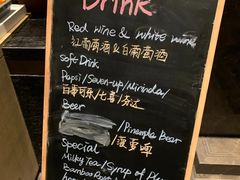 Drink
Red wine & white wine
红葡萄酒 & 白葡萄酒
Soft Drink
Pepsi/Seven-up/Mirinda/
百事可乐/七喜/芬达
Beer
/Pineapple Beer
/菠萝啤
Special
Milky Tea/Syrup of Plu
Bamboo Root